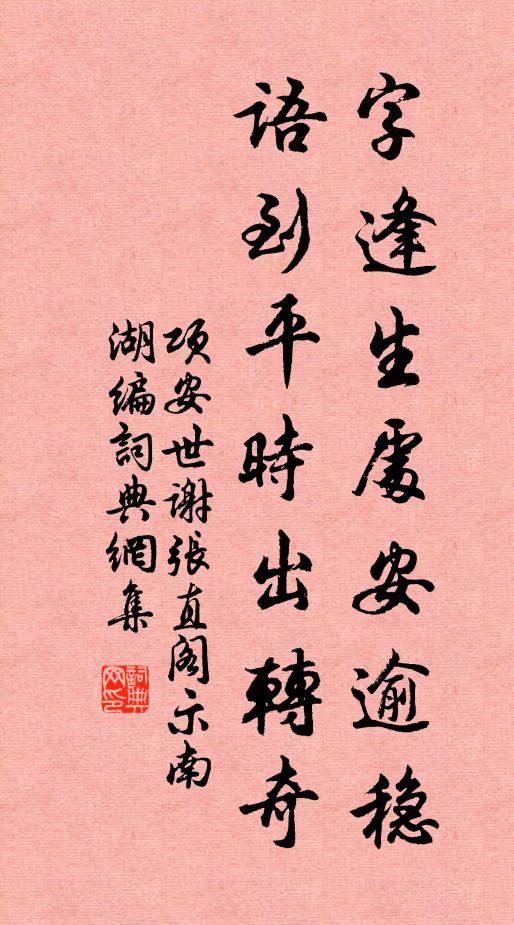 字逢生處安逾稳
語到平時出轉奇
项安世謝張直阁示南
湖编詞典網集
詞典网印